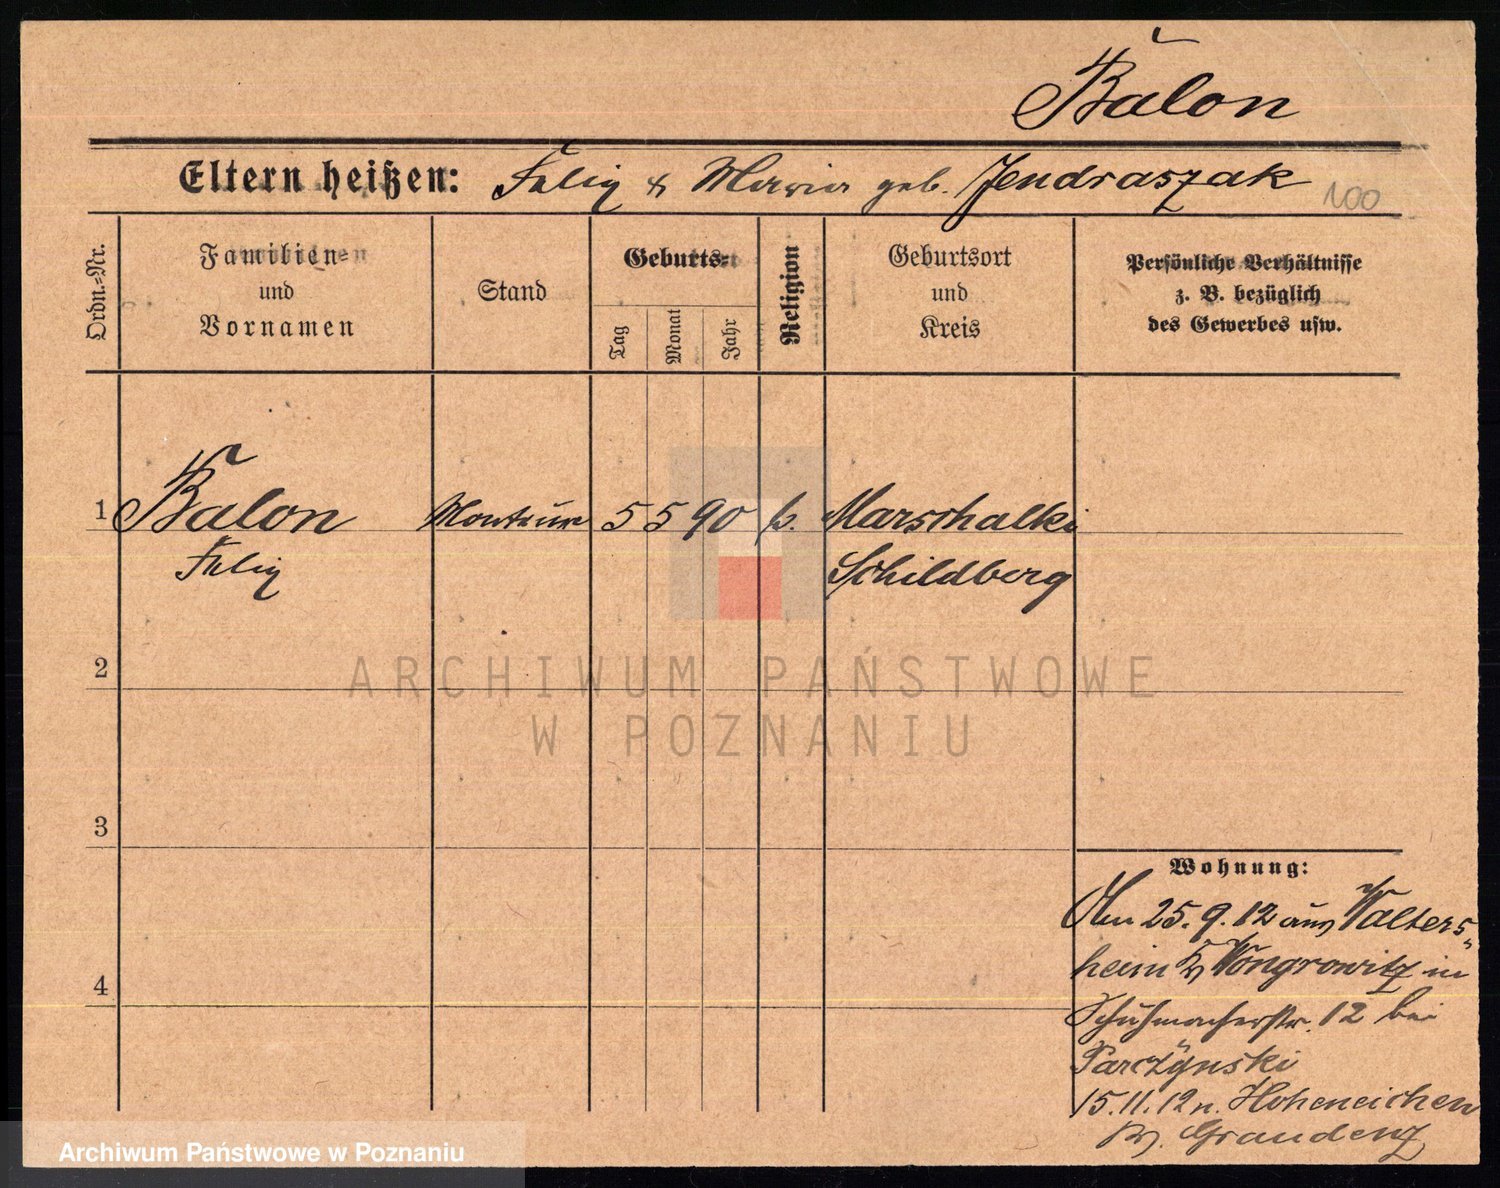 Balon
Eltern heißen: Felix & Maria geb. Jendraszak 100
Ordn.-Nr.
Familien-
und
Vornamen
Stand
Geburts-
Tag
Monat
Jahr
Religion
Geburtsort
und
Kreis
Persönliche Verhältnisse
z. B. bezüglich
des Gewerbes usw.
1 Balon Monteur 5 5 90 k. Marschalki
Felix Schildberg
2
3
4
Wohnung:
Am 25.9.12 aus Walters-
heim Kr Wongrowitz in
Schuhmacherstr. 12 bei
Parczynski
15.11.12 n. Hoheneichen
Kr. Graudenz
ARCHIWUM PAŃSTWOWE
W POZNANIU
Archiwum Państwowe w Poznaniu